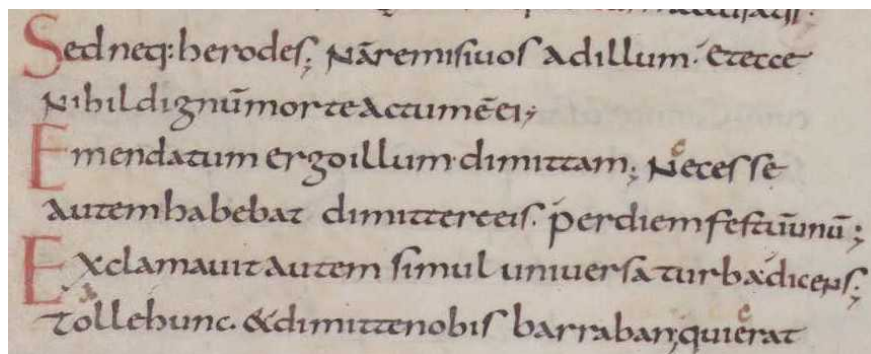 Sed neq: herodes; Nā remisi uos ad illum. et ecce
Nihil dignū morte actum ē ei;
Emendatum ergo illum dimittam; Necesse
autem habebat dimittere eis. per diem festū unū;
Exclamauit autem simul uniuersa turba dicens;
tolle hunc. & dimitte nobis barraban; qui erat